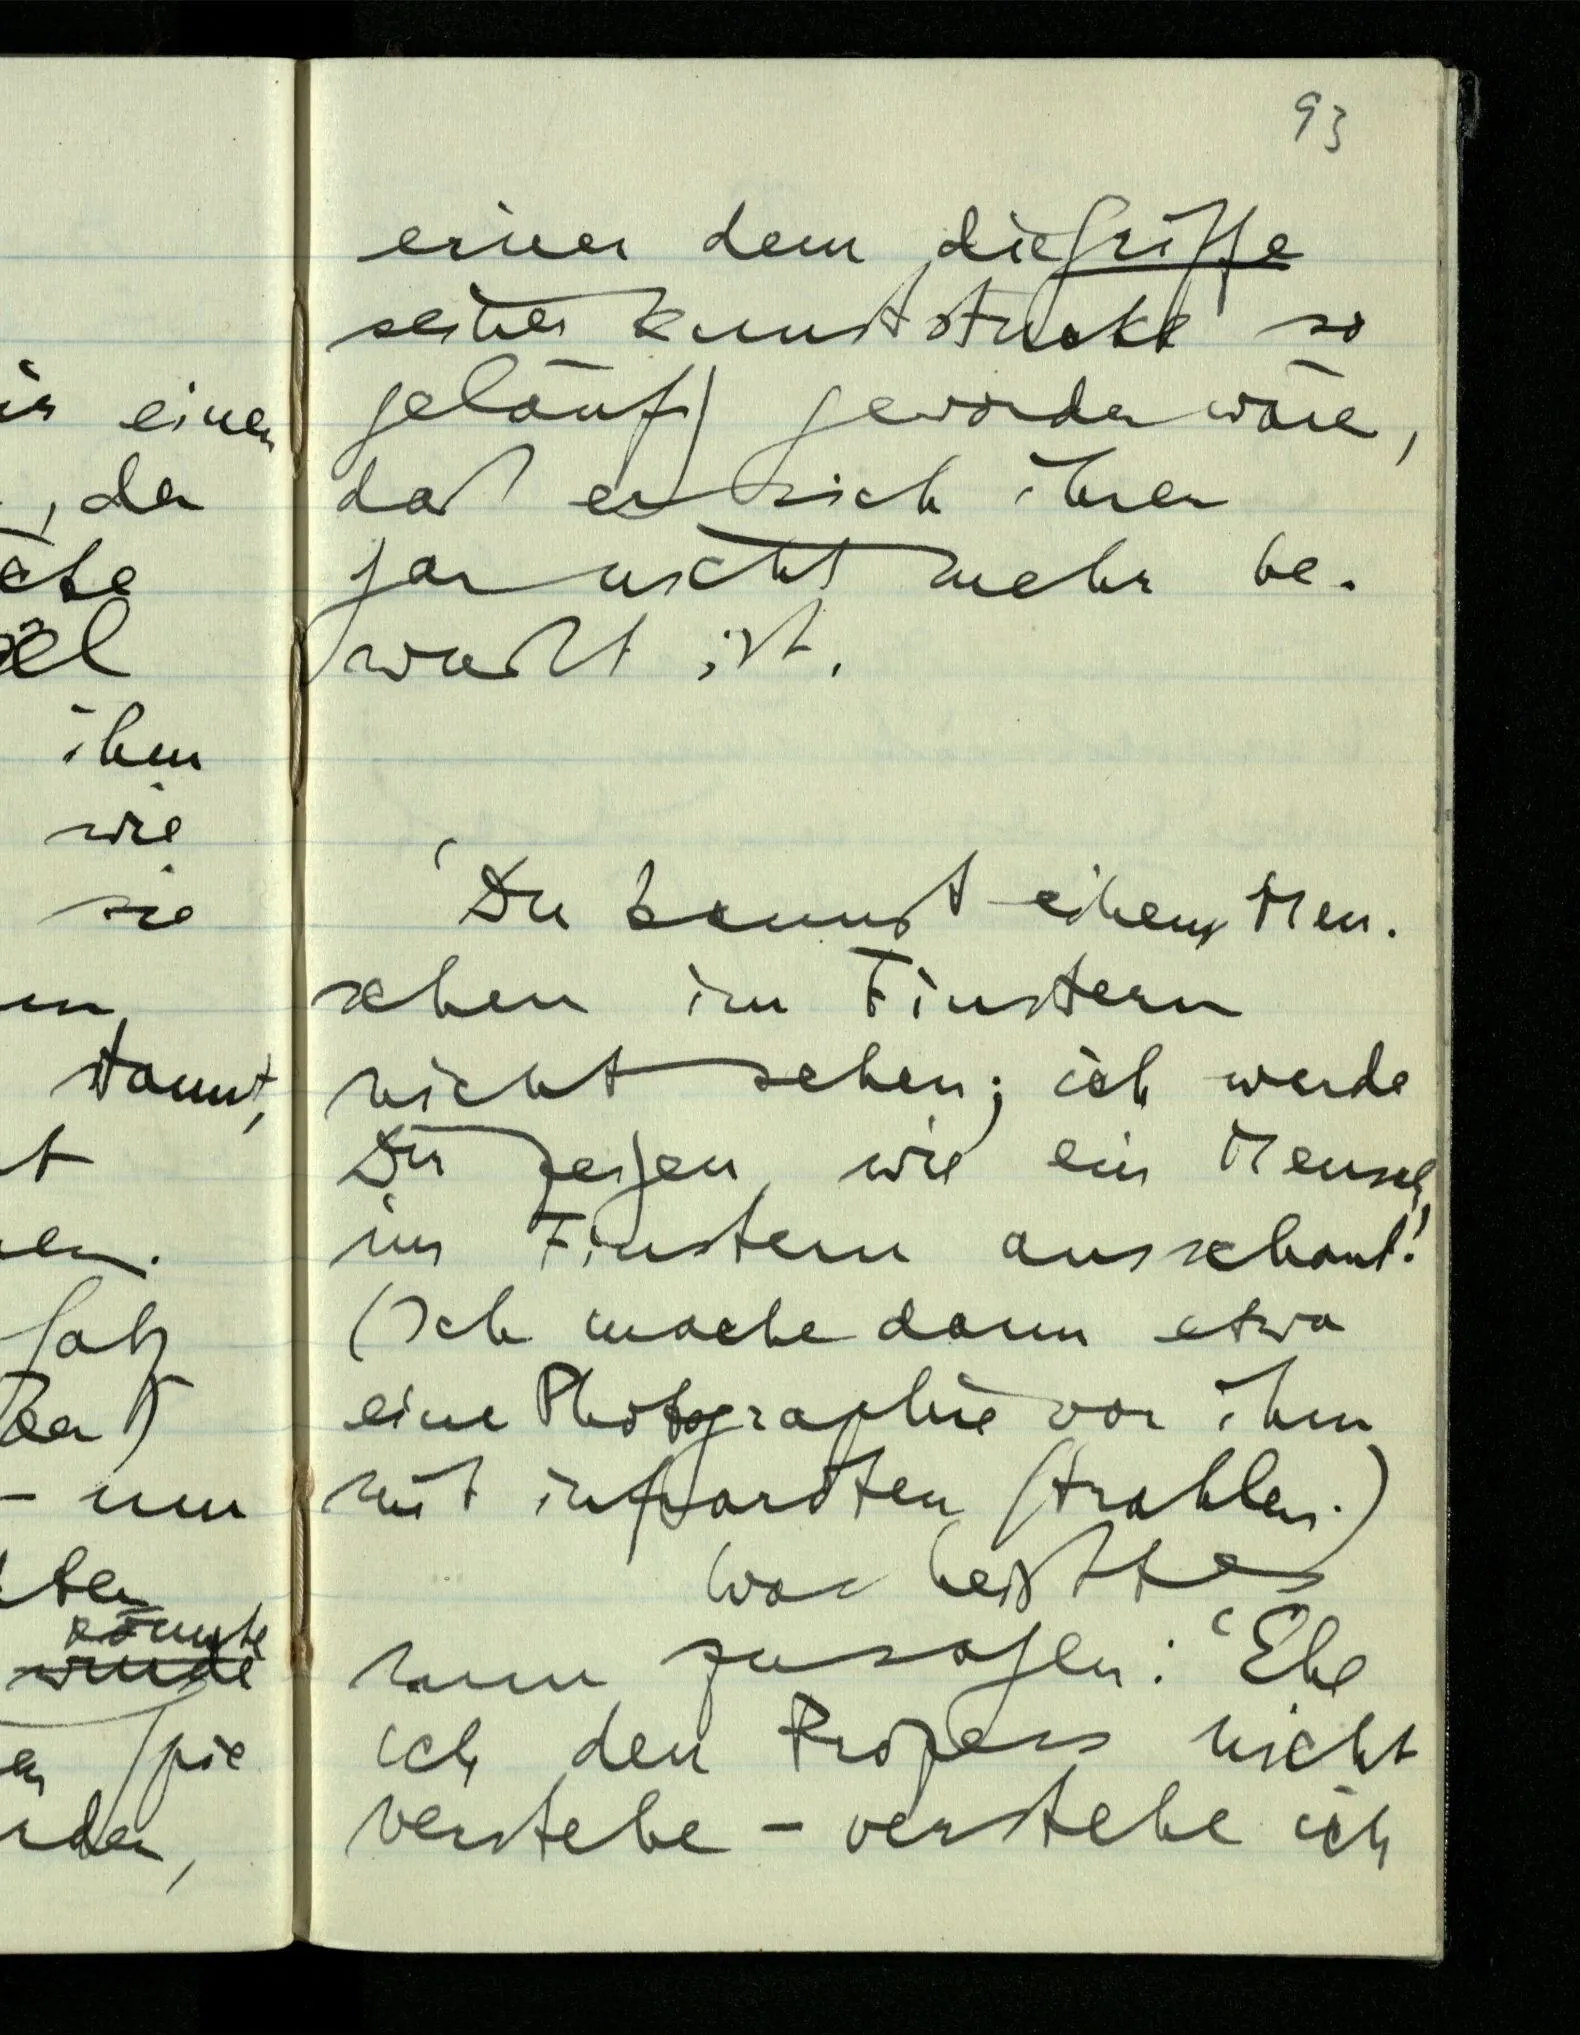 93
einer dem die Griffe
seiner Kunststücke so
geläufig geworden wären,
daß er sich ihrer
gar nicht mehr be-
wußt ist.
'Du kannst einen Men-
schen im Finstern
nicht sehen; ich werde
Dir zeigen wie ein Mensch
im Finstern ausschaut!'
(Ich mache dann etwa
eine Photographie von ihm
mit infraroten Strahlen.)
Was heißt es
nun zu sagen: "Ehe
ich den Prozess nicht
verstehe – verstehe ich
einen
, der
ihm
wie
sie
stammt,
Satz
– nun
könnte
wurde